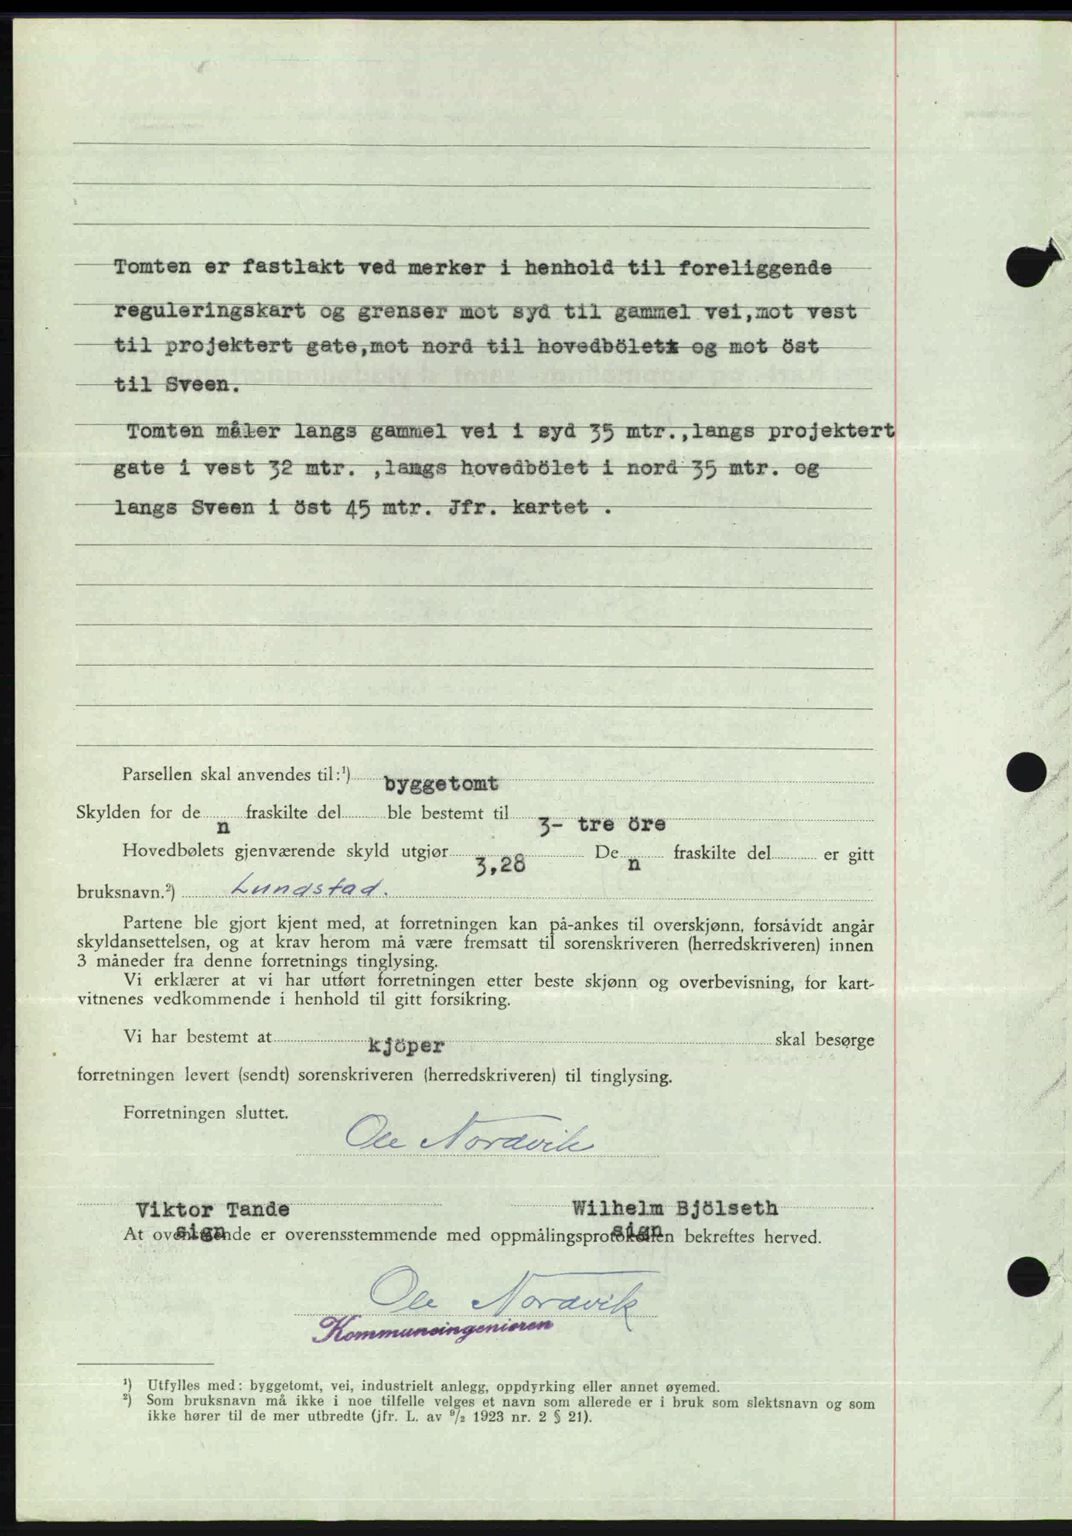 Tomten er fastlakt ved merker i henhold til foreliggende
reguleringskart og grenser mot syd til gammel vei,mot vest
til projektert gate,mot nord til hovedbölet og mot öst
til Sveen.
Tomten måler langs gammel vei i syd 35 mtr.,langs projektert
gate i vest 32 mtr. ,langs hovedbölet i nord 35 mtr. og
langs Sveen i öst 45 mtr. Jfr. kartet .
Parsellen skal anvendes til:¹) byggetomt
Skylden for de n fraskilte del ble bestemt til 3- tre öre
Hovedbølets gjenværende skyld utgjør 3,28 De n fraskilte del er gitt
bruksnavn.²) Lundstad.
Partene ble gjort kjent med, at forretningen kan på-ankes til overskjønn, forsåvidt angår
skyldansettelsen, og at krav herom må være fremsatt til sorenskriveren (herredskriveren) innen
3 måneder fra denne forretnings tinglysing.
Vi erklærer at vi har utført forretningen etter beste skjønn og overbevisning, for kart-
vitnenes vedkommende i henhold til gitt forsikring.
Vi har bestemt at kjöper skal besørge
forretningen levert (sendt) sorenskriveren (herredskriveren) til tinglysing.
Forretningen sluttet.
Ole Nordvik
Viktor Tande Wilhelm Bjölseth
sign sign
At ovenstående er overensstemmende med oppmålingsprotokollen bekreftes herved.
Ole Nordvik
Kommuneingeniøren
¹) Utfylles med: byggetomt, vei, industrielt anlegg, oppdyrking eller annet øyemed.
²) Som bruksnavn må ikke i noe tilfelle velges et navn som allerede er i bruk som slektsnavn og som
ikke hører til de mer utbredte (jfr. L. av ⁹/₂ 1923 nr. 2 § 21).